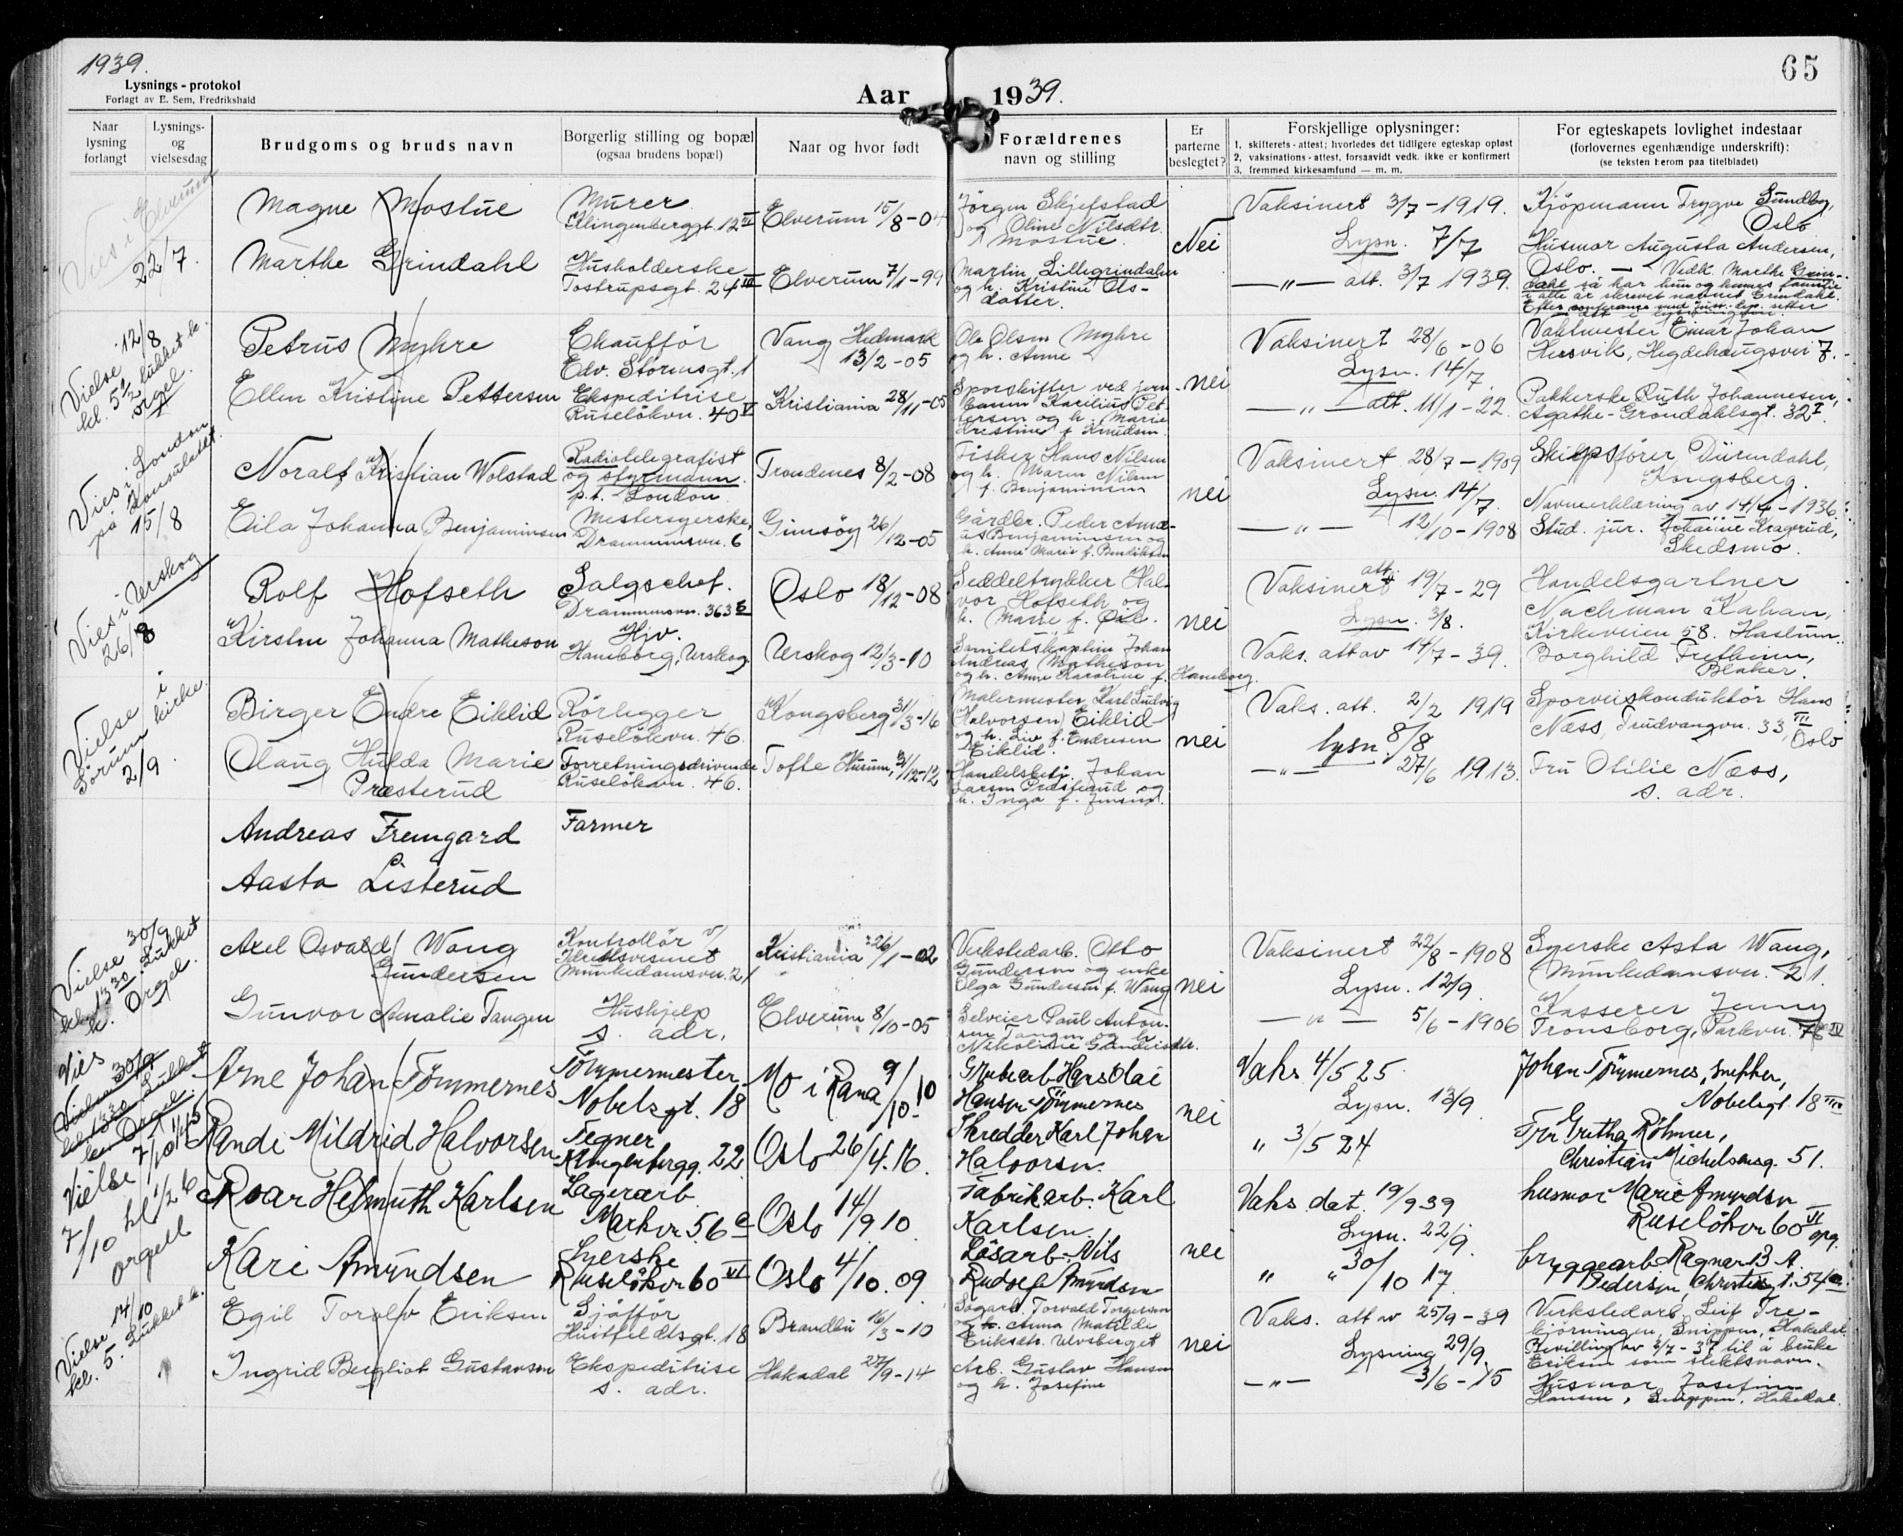 1939.
Lysnings-protokol
Forlagt av E. Sem, Fredrikshald
Aar 1939.
65
Naar lysning forlangt
Lysnings- og vielsesdag
Brudgoms og bruds navn
Borgerlig stilling og bopæl
(ogsaa brudens bopæl)
Naar og hvor født
Forældrenes
navn og stilling
Er parterne beslegtet?
Forskjellige oplysninger:
1. skifterets-attest; hvorledes det tidligere egteskap opløst
2. vaksinations-attest, forsaavidt vedk. ikke er konfirmert
3. fremmed kirkesamfund — m. m.
For egteskapets lovlighet indestaar
(forlovernes egenhændige underskrift):
(se teksten herom paa titelbladet)
Vies i Elverum
22/7.
Magne Mostue
Murer
Klingenberggt. 12 III
Elverum 15/8-04
Jörgen Skjefstad
og Oline Nilsdtr.
Mostue.
Nei
Vaksinert 3/7-1919.
Lysn. 7/7
Kjöpmann Trygve Sundby,
Oslo
Marthe Grindahl
Husholderske
Tostrupsgt. 24 III
Elverum 7/1-99
Martin Lillegrindalen
og h. Kristine Ols-
datter.
—„— att. 3/7 1939.
Husmor Augusta Andersen,
Oslo. — Vedk. Marthe Grin-
dahl så har hun og hennes familie
i alle år skrevet navnet Grindahl.
Vielse 12/8
kl. 5 1/2 lukket k.
orgel.
Petrus Myhre
Chauffør
Edv. Stormsgt. 1
Vang Hedmark
13/2-05
Ole Olsen Myhre
og h. Anne
nei
Vaksinert 28/6-06
Lysn. 14/7
Vaktmester Einar Johan
Hersvik, Hegdehaugsvei 7.
Ellen Kristine Pettersen
Ekspeditrise
Ruselökvn. 40 V
Kristiania 28/11-05
Sporskifter ved jern-
banen Karelius Pet-
tersen og h. Marie
Kristine f. Knudsen.
—„— att. 11/1-22.
Pakkerske Ruth Johannesen,
Agathe-Gröndahlsgt. 32 I
Vies i London
på Konsulatet.
15/8
Noralf Kristian Wolstad
Radiotelegrafist
og styrmann.
p.t. London
Trondenes 8/2-08
Fisker Hans Nilsen
og h. Maren Nilsen
f. Benjaminsen
nei
Vaksinert 28/7-1909
Lysn. 14/7.
Skipsfører Dürendahl,
Kongsberg.
Navneerklæring av 14/4-1936
Eila Johanna Benjaminsen
Mestersyerske,
Drammensvn. 6
Gimsöy 26/12-05
Gårdbr. Peder And-
as Benjaminsen og
h. Anne Marie f. Bendiksen
—„— 12/10-1908
Stud. jur. Johanne Kragerud,
Skedsmo.
Vies i Urskog
26/8
Rolf Hofseth
Salgschef.
Drammensvn. 363 E
Oslo 18/12-08
Seddeltrykker Hal-
vor Hofseth og
h. Marie f. Oisl.
nei
Vaksinert att. 19/7-29
Lysn. 3/8.
Handelsgartner
Nachman Kahan,
Kirkeveien 58. Haslum.
Kirsten Johanna Matheson
Hjv.
Haneborg, Urskog.
Urskog 12/3-10
Sanitetskaptein Johan
Andreas Matheson
og h. Anne Karoline f. Haneborg.
Vaks. att av 14/7-39.
Borghild Fretheim,
Blaker.
Vielse i
Sörum kirke.
2/9.
Birger Endre Eiklid
Rörlegger
Ruselökvn. 46.
Kongsberg 31/3-16
Malermester Karl Ludvig
Halvorsen Eiklid
og h. Liv f. Endresen
Eiklid.
nei
Vaks. att. 2/2 1919
Lysn. 8/8
Sporveiskonduktör Hans
Næss, Trudvangvn. 33 III,
Oslo
Olaug Hulda Marie
Præsterud
Forretningsdrivende
Ruselökvn. 46.
Tofte Hurum, 31/12-12
Handelsbetj. Johan
Larsen Præsterud og
h. Inga f. Jensen.
—„— 27/6 1913.
Fru Otilie Næss,
s. adr.
Andreas Fremgard
Farmer
Aasta Listerud
Vielse 30/9
kl. 13 30. Lukket
k. Orgel.
Axel Osvald Wang
Gundersen
Kontrollör v/
Idrettsvesenet
Munkedamsvn. 21
Kristiania 26/1-02
Verkstedarb. Otto
Gundersen og enke
Olga Gundersen f. Wang
nei
Vaksinert 22/8-1908
Lysn. 12/9.
Syerske Asta Wang,
Munkedamsvn. 21.
Gunvor Amalie Tangen
Hushjelp
s. adr.
Elverum 8/10-05
Selveier Paul Anton-
sen Tangen og h.
Nikoline Gundersdtr.
—„— 5/6-1906
Kasserer Jenny
Tronsborg, Parkvn. 76 IV
Vies
Vielse 30/9
kl. 13 30 Lukket
k. Orgel.
7/10 1145
Arne Johan Tömmernes
Tömmermester
Nobelsgt. 18
Mo i Rana 9/10-10
Grubearb Hans Olai
Hansen Tömmernes
nei
Vaks 4/5 25.
Lysn. 13/9.
Johan Tömmernes, snekker,
Nobelsgt. 18 III
Randi Mildrid Halvorsen
Tegner
Klingenbergg. 22
Oslo 26/4.16.
Skredder Karl Johan
Halvorsen.
„ 3/5 24
Frk Grethe Röhmer,
Christian Michelsensg. 51.
Vielse
7/10 kl 1/2 6
orgell
Roar Helmuth Karlsen
Lagerarb.
Markvn. 56 c
Oslo 14/9 10.
Fabrikarb. Karl
Karlsen.
nei
Vaks dat. 19/9 39
Lysn. 22/9.
husmor Marie Amundsen
Ruselökvn 60 VI opg.
Kari Amundsen
Syerske
Ruselökvn 60 VI
Oslo 4/10.09.
Lösarb. Nils
Rudolf Amundsen
„ „ 30/10 17
bryggearb. Ragnar B. A.
Pedersen, Christies g. 54
Vielse 14/10
kl. 5. Lukket k.
Egil Toralv Eriksen
Sjåffør
Huitfeldtsgt. 18
Brandbu 16/3-10
Sagarb. Torvald Torgersen
og h. Anna Matilde
Eriksdtr. Ulvsberget
nei
Vaks. att av 25/9-39
Lysning 29/9.
Verkstedarb. Leif Tre-
kjörningen, Snippen, Hakedal.
Bevilling av 2/7-37 til å bruke
Eriksen som slektsnavn.
Ingrid Bergliot Gustavsen
Ekspeditrise
s. adr.
Hakadal 27/9-14
Arb. Gustav Hansen
og h. Josefine
—„— 3/6-15
Husmor Josefine
Hansen, Snippen, Hakedal.